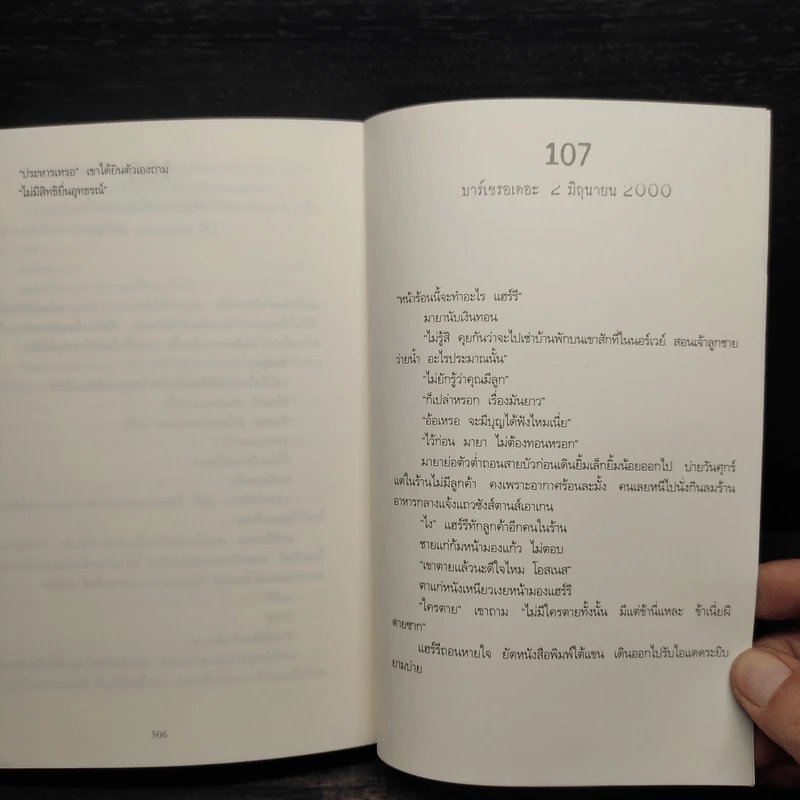 "ประหารเหรอ" เขาได้ยินตัวเองถาม
"ไม่มีสิทธิยื่นอุทธรณ์"
506
107
บาร์เชรอเดอะ 2 มิถุนายน 2000
"หน้าร้อนนี้จะทำอะไร แฮร์รี"
มายานับเงินทอน
"ไม่รู้สิ คุยกันว่าจะไปเช่าบ้านพักบนเขาสักที่ในนอร์เวย์ สอนเจ้าลูกชาย
ว่ายน้ำ อะไรประมาณนั้น"
"ไม่ยักรู้ว่าคุณมีลูก"
"ก็เปล่าหรอก เรื่องมันยาว"
"อ้อเหรอ จะมีบุญได้ฟังไหมเนี่ย"
"ไว้ก่อน มายา ไม่ต้องทอนหรอก"
มายาย่อตัวต่ำถอนสายบัวก่อนเดินยิ้มเล็กยิ้มน้อยออกไป บ่ายวันศุกร์
แต่ในร้านไม่มีลูกค้า คงเพราะอากาศร้อนละมั้ง คนเลยหนีไปนั่งกินลมร้าน
อาหารกลางแจ้งแถวซังส์ตานส์เอาเกน
"ไง" แฮร์รีทักลูกค้าอีกคนในร้าน
ชายแก่ก้มหน้ามองแก้ว ไม่ตอบ
"เขาตายแล้วนะดีใจไหม โอสเนส"
ตาแก่หนังเหนียวเงยหน้ามองแฮร์รี
"ใครตาย" เขาถาม "ไม่มีใครตายทั้งนั้น มีแต่ข้านี่แหละ ข้าเนี่ยผี
ตายซาก"
แฮร์รีถอนหายใจ ยัดหนังสือพิมพ์ใต้แขน เดินออกไปรับไอแดดระยิบ
ยามบ่าย